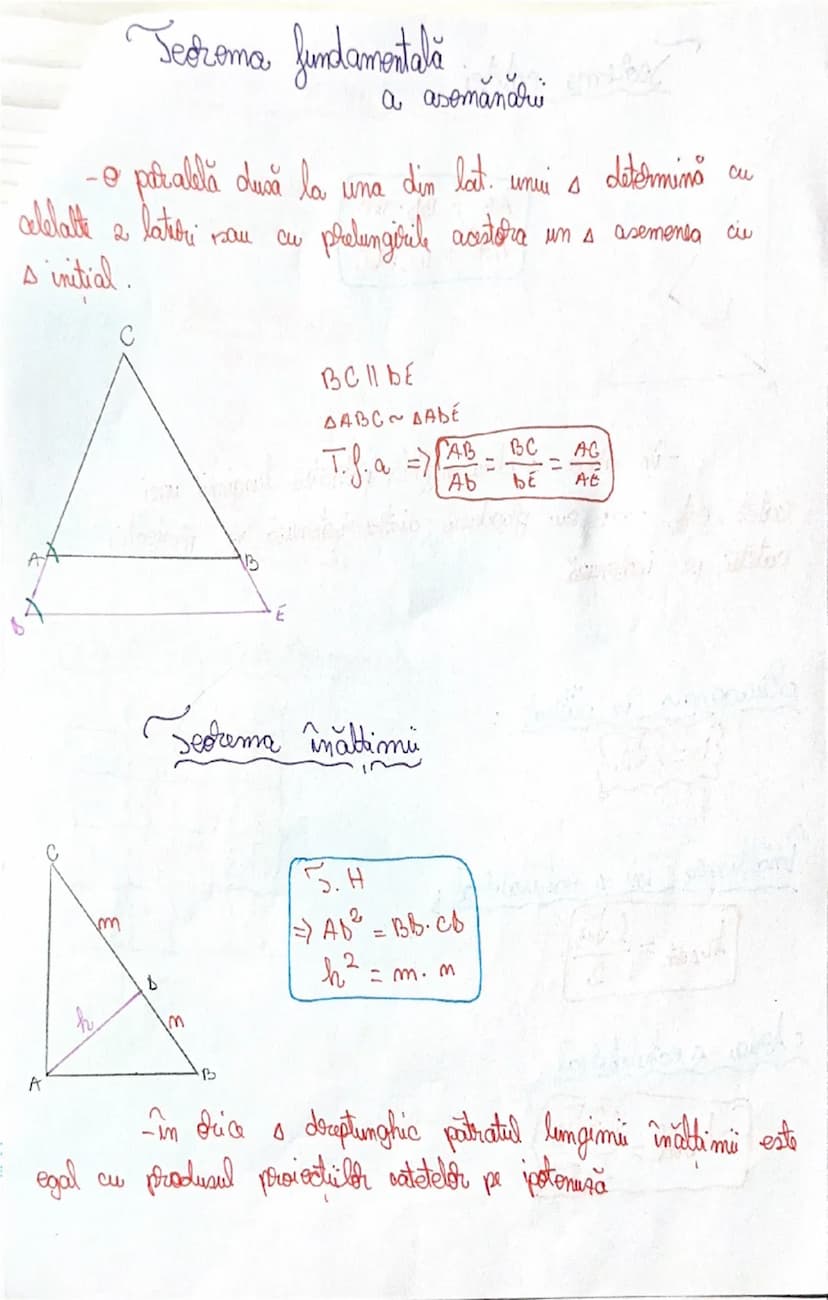 Teorema fundamentală
a asemănării
- O paralelă dusă la una din lat. unui Δ determină cu
celelalte 2 laturi sau cu prelungirile acestora un Δ asemenea cu
Δ inițial.
C
BC || DE
ΔABC ~ ΔADE
T.f.a => AB/AD = BC/DE = AC/AE
A B
D E
Teorema înălțimii
C
T.H
m
=> AD² = BD · CD
h² = m · n
D
h n
A B
- în orice Δ dreptunghic pătratul lungimii înălțimii este
egal cu produsul proiecțiilor catetelor pe ipotenuză